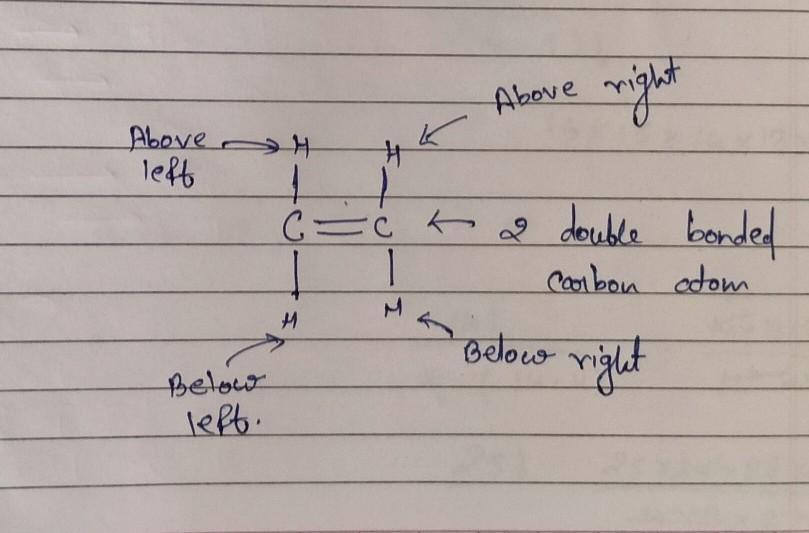 Above right
Above
left
H H
C = C
2 double bonded
carbon atom
H H
Below right
Below
left.